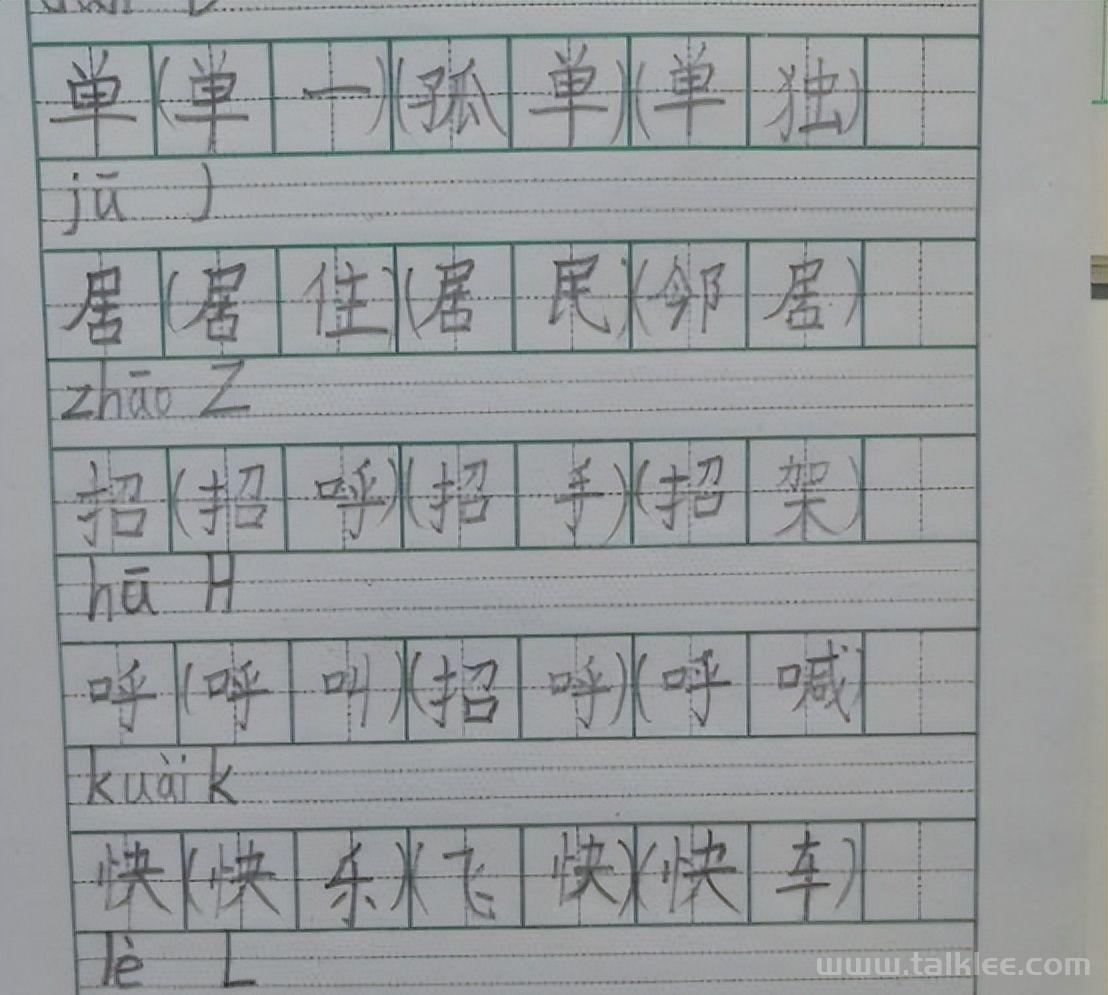 单(单一)(孤单)(单独)
jū J
居(居住)(居民)(邻居)
zhāo Z
招(招呼)(招手)(招架)
hū H
呼(呼叫)(招呼)(呼喊)
kuài k
快(快乐)(飞快)(快车)
lè L
www.talklee.com